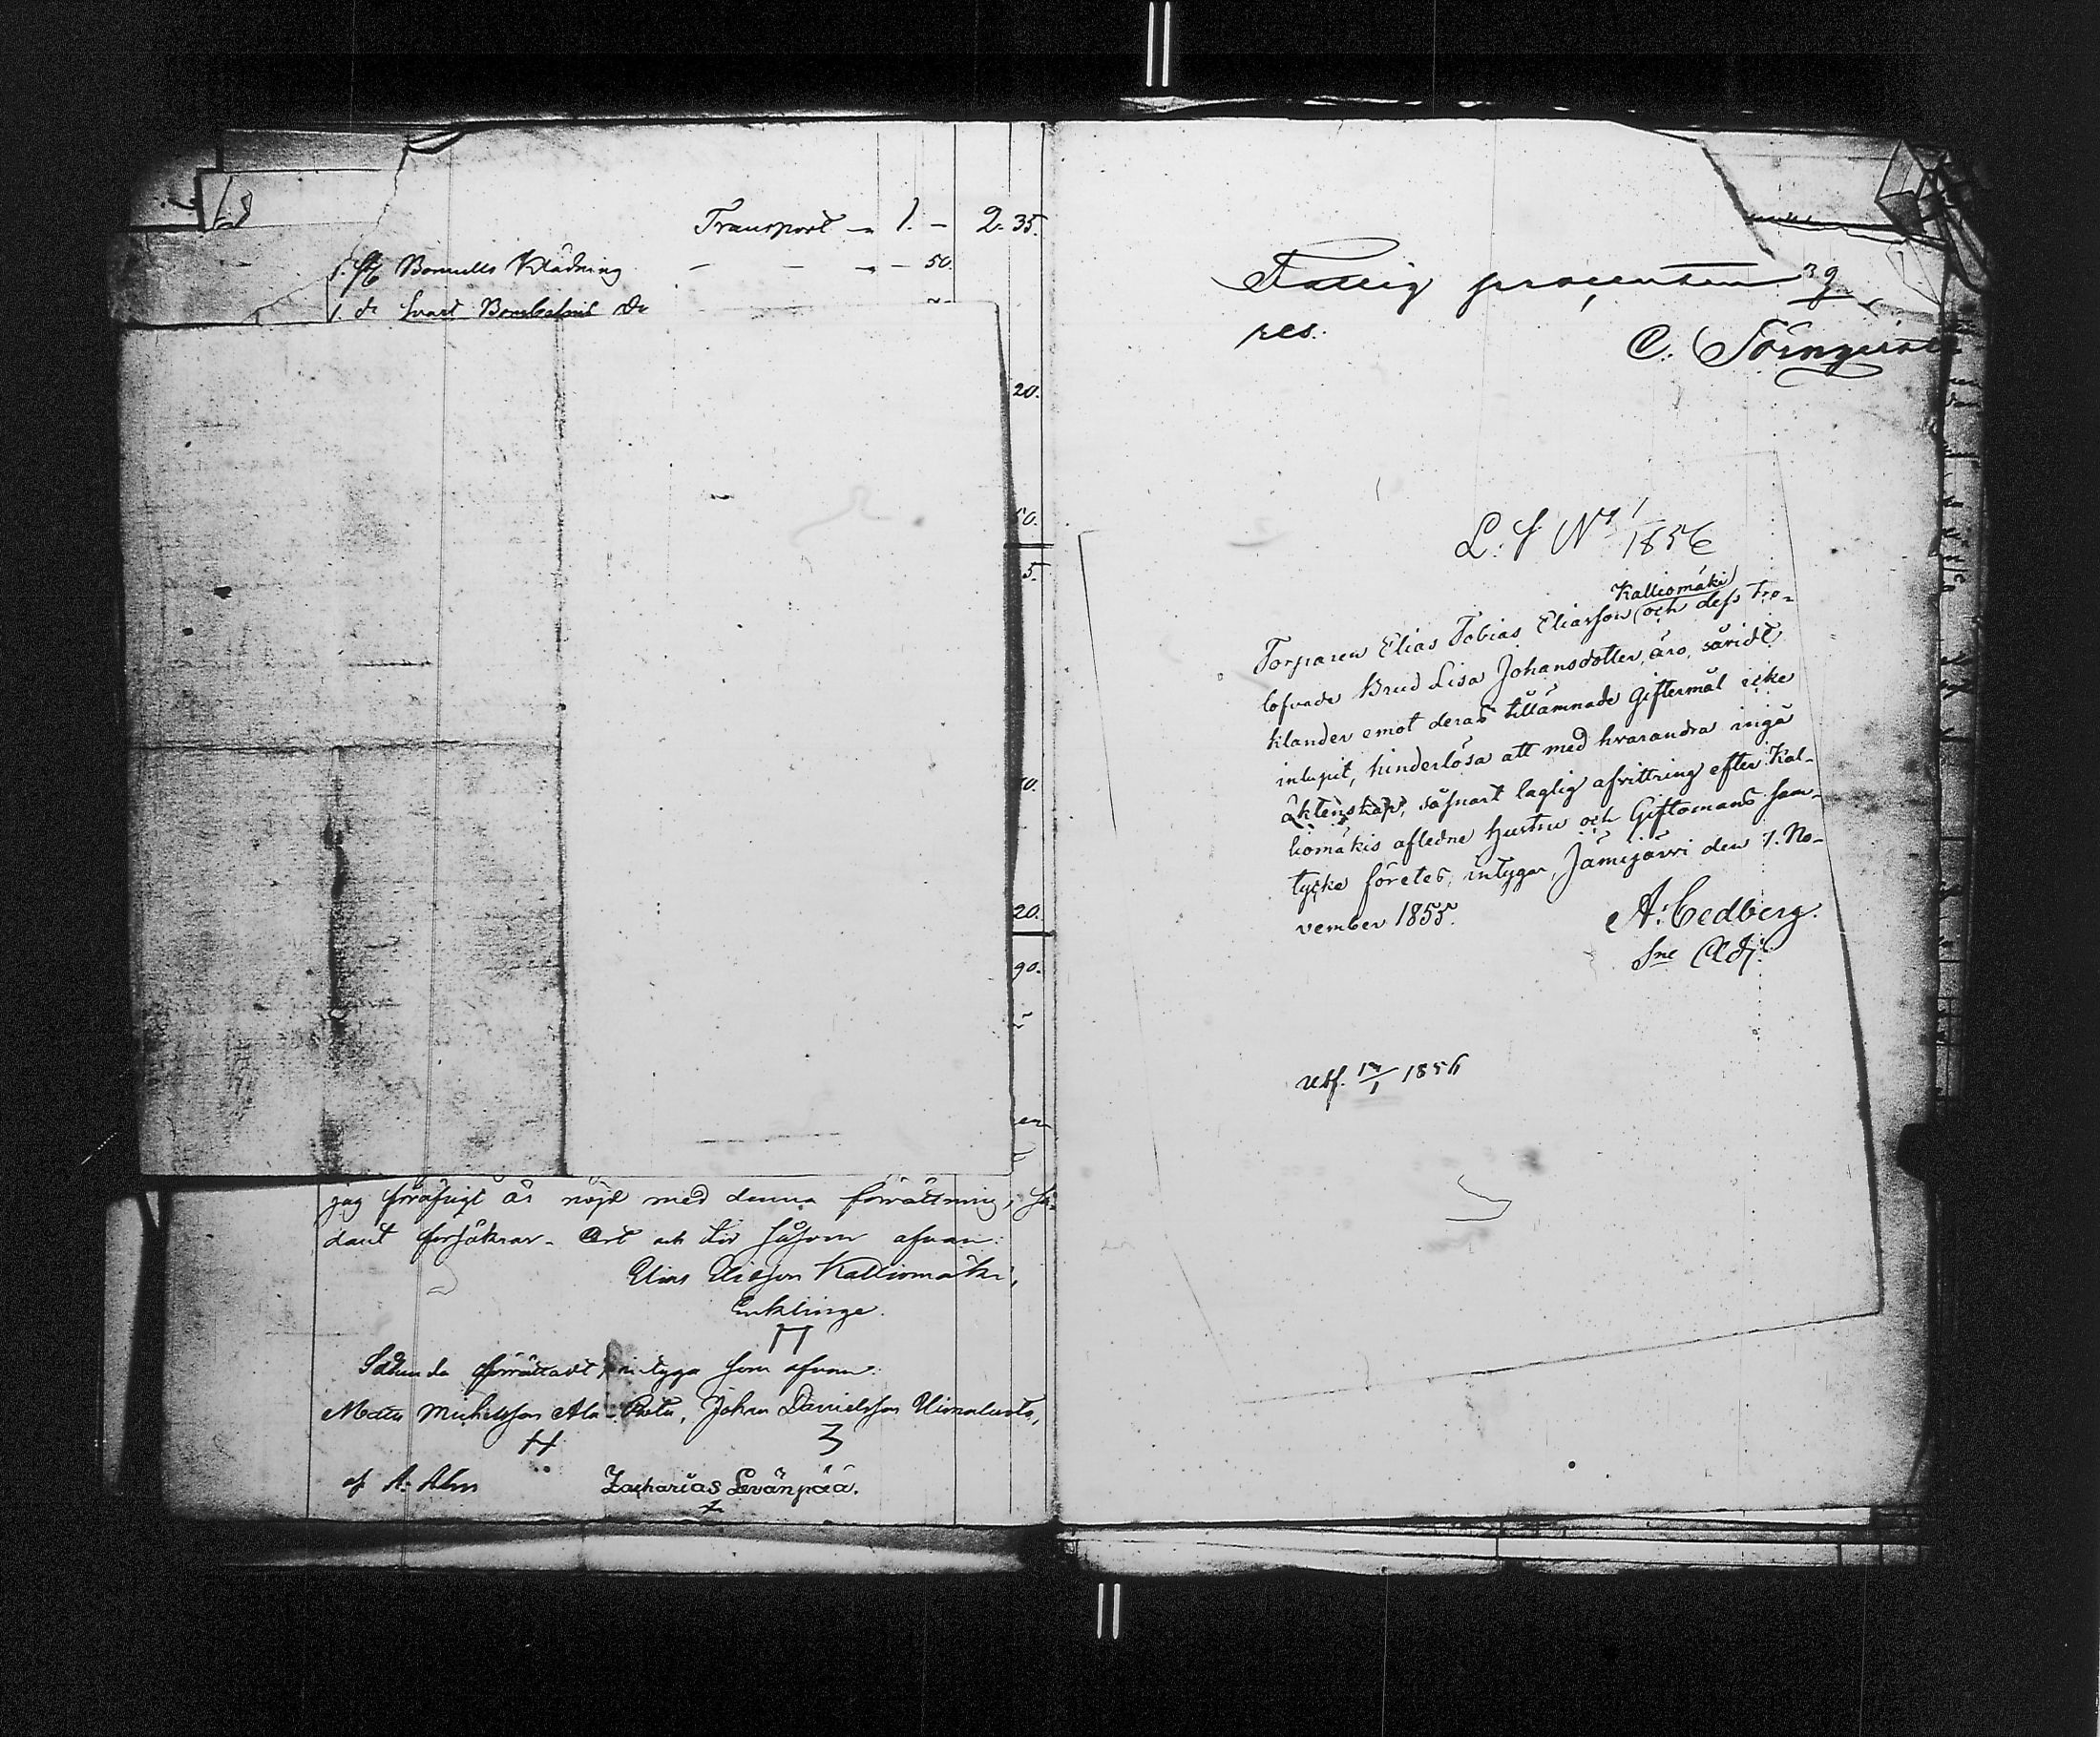 Transport — 1. — 2. 35.
1. st Bomulls Klädning — — — 50.
1. do svart do
20.
50.
5.
20.
90.
jag för öfrigt är nöjd med denna förrättning, så-
dant försäkrar. Ort och tid såsom ofvan:
Elias Eliasson Kalliomäki,
Enklinge.
Sålunda förrättadt, intyga som ofvan:
Matts Michelsson Ala-, Johan Danielsson
H 3
af A. Alm Zacharias Levänpää.
Fattig procenten 39
res.
C.
L. S. No 1
1856
Kalliomäki
Torparen Elias Tobias Eliasson och dess tro-
lofvade Brud Lisa Johansdotter, äro, såvidt
klander emot deras tillämnade giftermål icke
inlupit, hinderlösa att med hvarandra ingå
äktenskap, såsnart laglig afvittring efter Kal-
liomäkis aflidne hustru och Giftomans sam-
tycke företes; intygar, Jämijärvi den 7. No-
vember 1855.
A: Cedberg.
Sne Adj.
Utf. 1856